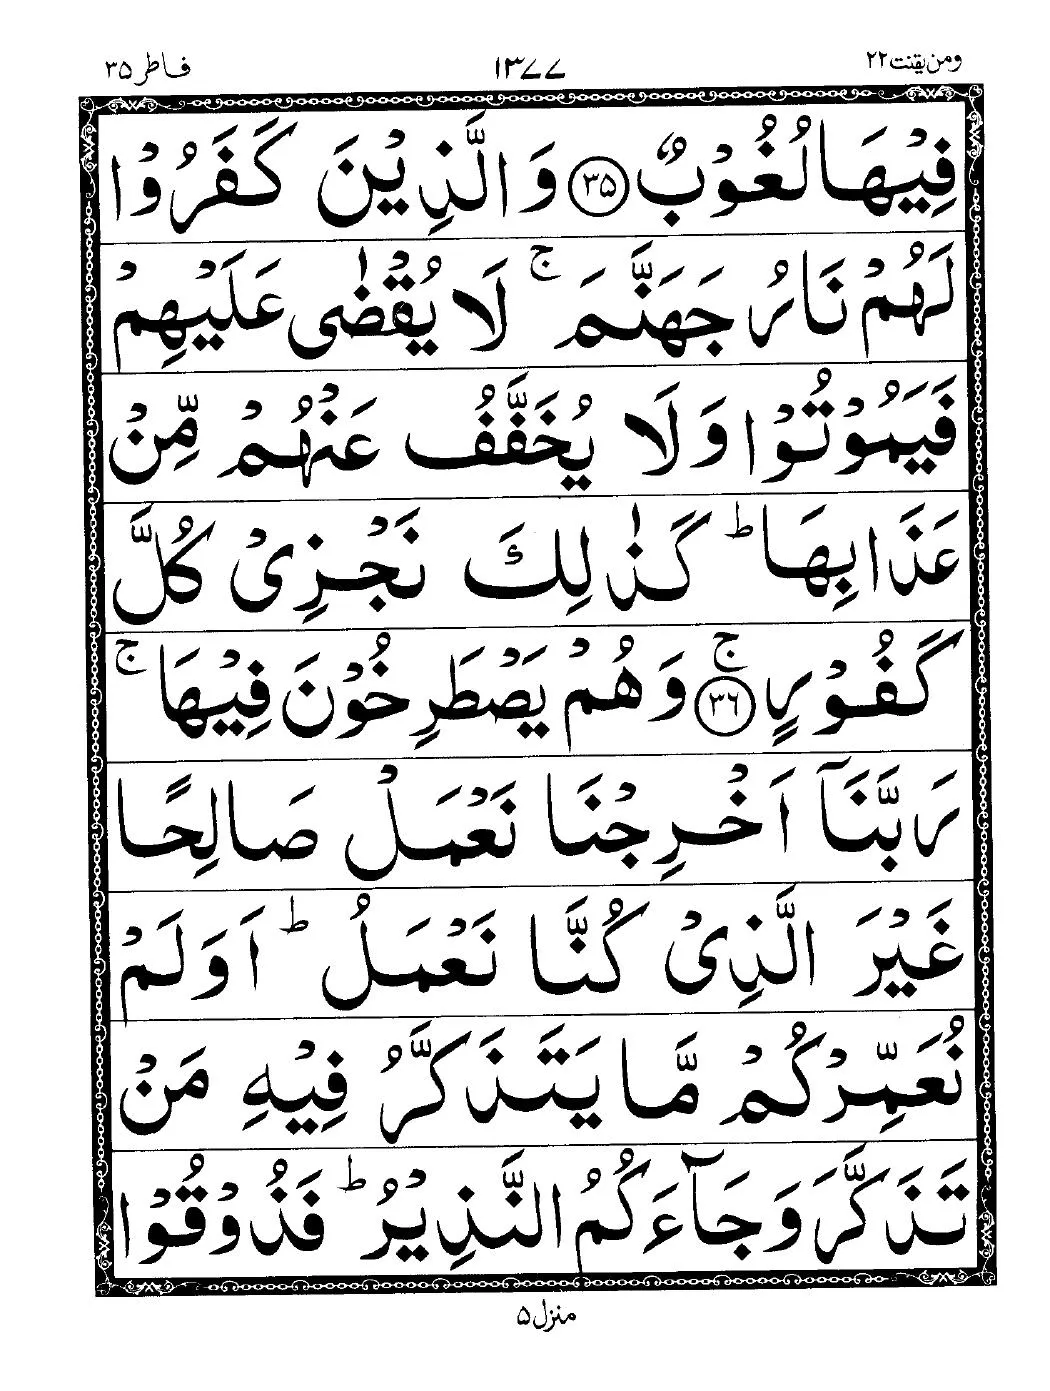 ومن یقنت ۲۲ ۱۳۷۷ فاطر ۳۵
فِیْهَا لُغُوْبٌ ۝۳۵ وَالَّذِیْنَ كَفَرُوْا
لَهُمْ نَارُ جَهَنَّمَ ۚ لَا یُقْضٰی عَلَیْهِمْ
فَیَمُوْتُوْا وَلَا یُخَفَّفُ عَنْهُمْ مِّنْ
عَذَابِهَا ؕ كَذٰلِكَ نَجْزِیْ كُلَّ
كَفُوْرٍ ۝۳۶ۚ وَهُمْ یَصْطَرِخُوْنَ فِیْهَا ۚ
رَبَّنَاۤ اَخْرِجْنَا نَعْمَلْ صَالِحًا
غَیْرَ الَّذِیْ كُنَّا نَعْمَلُ ؕ اَوَلَمْ
نُعَمِّرْكُمْ مَّا یَتَذَكَّرُ فِیْهِ مَنْ
تَذَكَّرَ وَجَآءَكُمُ النَّذِیْرُ ؕ فَذُوْقُوْا
منزل ۵